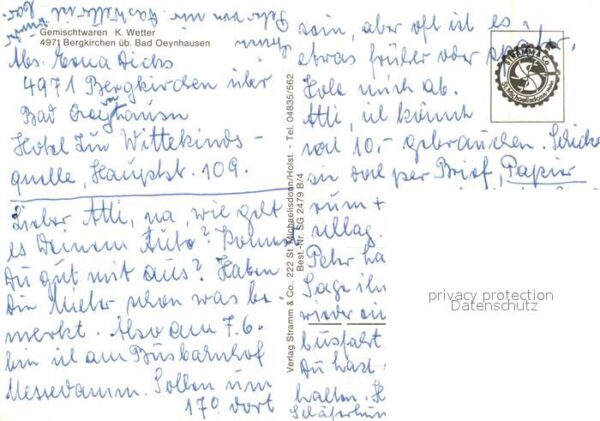 Gemischtwaren K. Wetter
4971 Bergkirchen üb. Bad Oeynhausen
Abs. Erna Dichs
4971 Bergkirchen über
Bad Oeynhausen
Hotel Zur Wittekinds-
quelle, Hauptstr. 109.
Lieber Atti, na, wie geht
es Deinem Auto? Kommst
Du gut mit aus? Haben
Die Mieter schon was be-
merkt. Also am 7.6.
bin ich am Busbahnhof
Messedamm. Sollen um
17° dort
sein, aber oft ist es
etwas früher oder später.
Hole mich ab.
Atti, ich könnte
noch 10,- gebrauchen. Schicke
sie doch per Brief, Papier
rum +
Peter ha
Sage ihm
wieder ein
busfahrt
Du hast
halten.
Schäferhun
Verlag Stramm & Co., 222 St. Michaelisdonn/Holst. - Tel. 04835/562
Best.-Nr. SG 2479 B/4
STRAMM & CO.
St. Michaelisdonn
privacy protection
Datenschutz